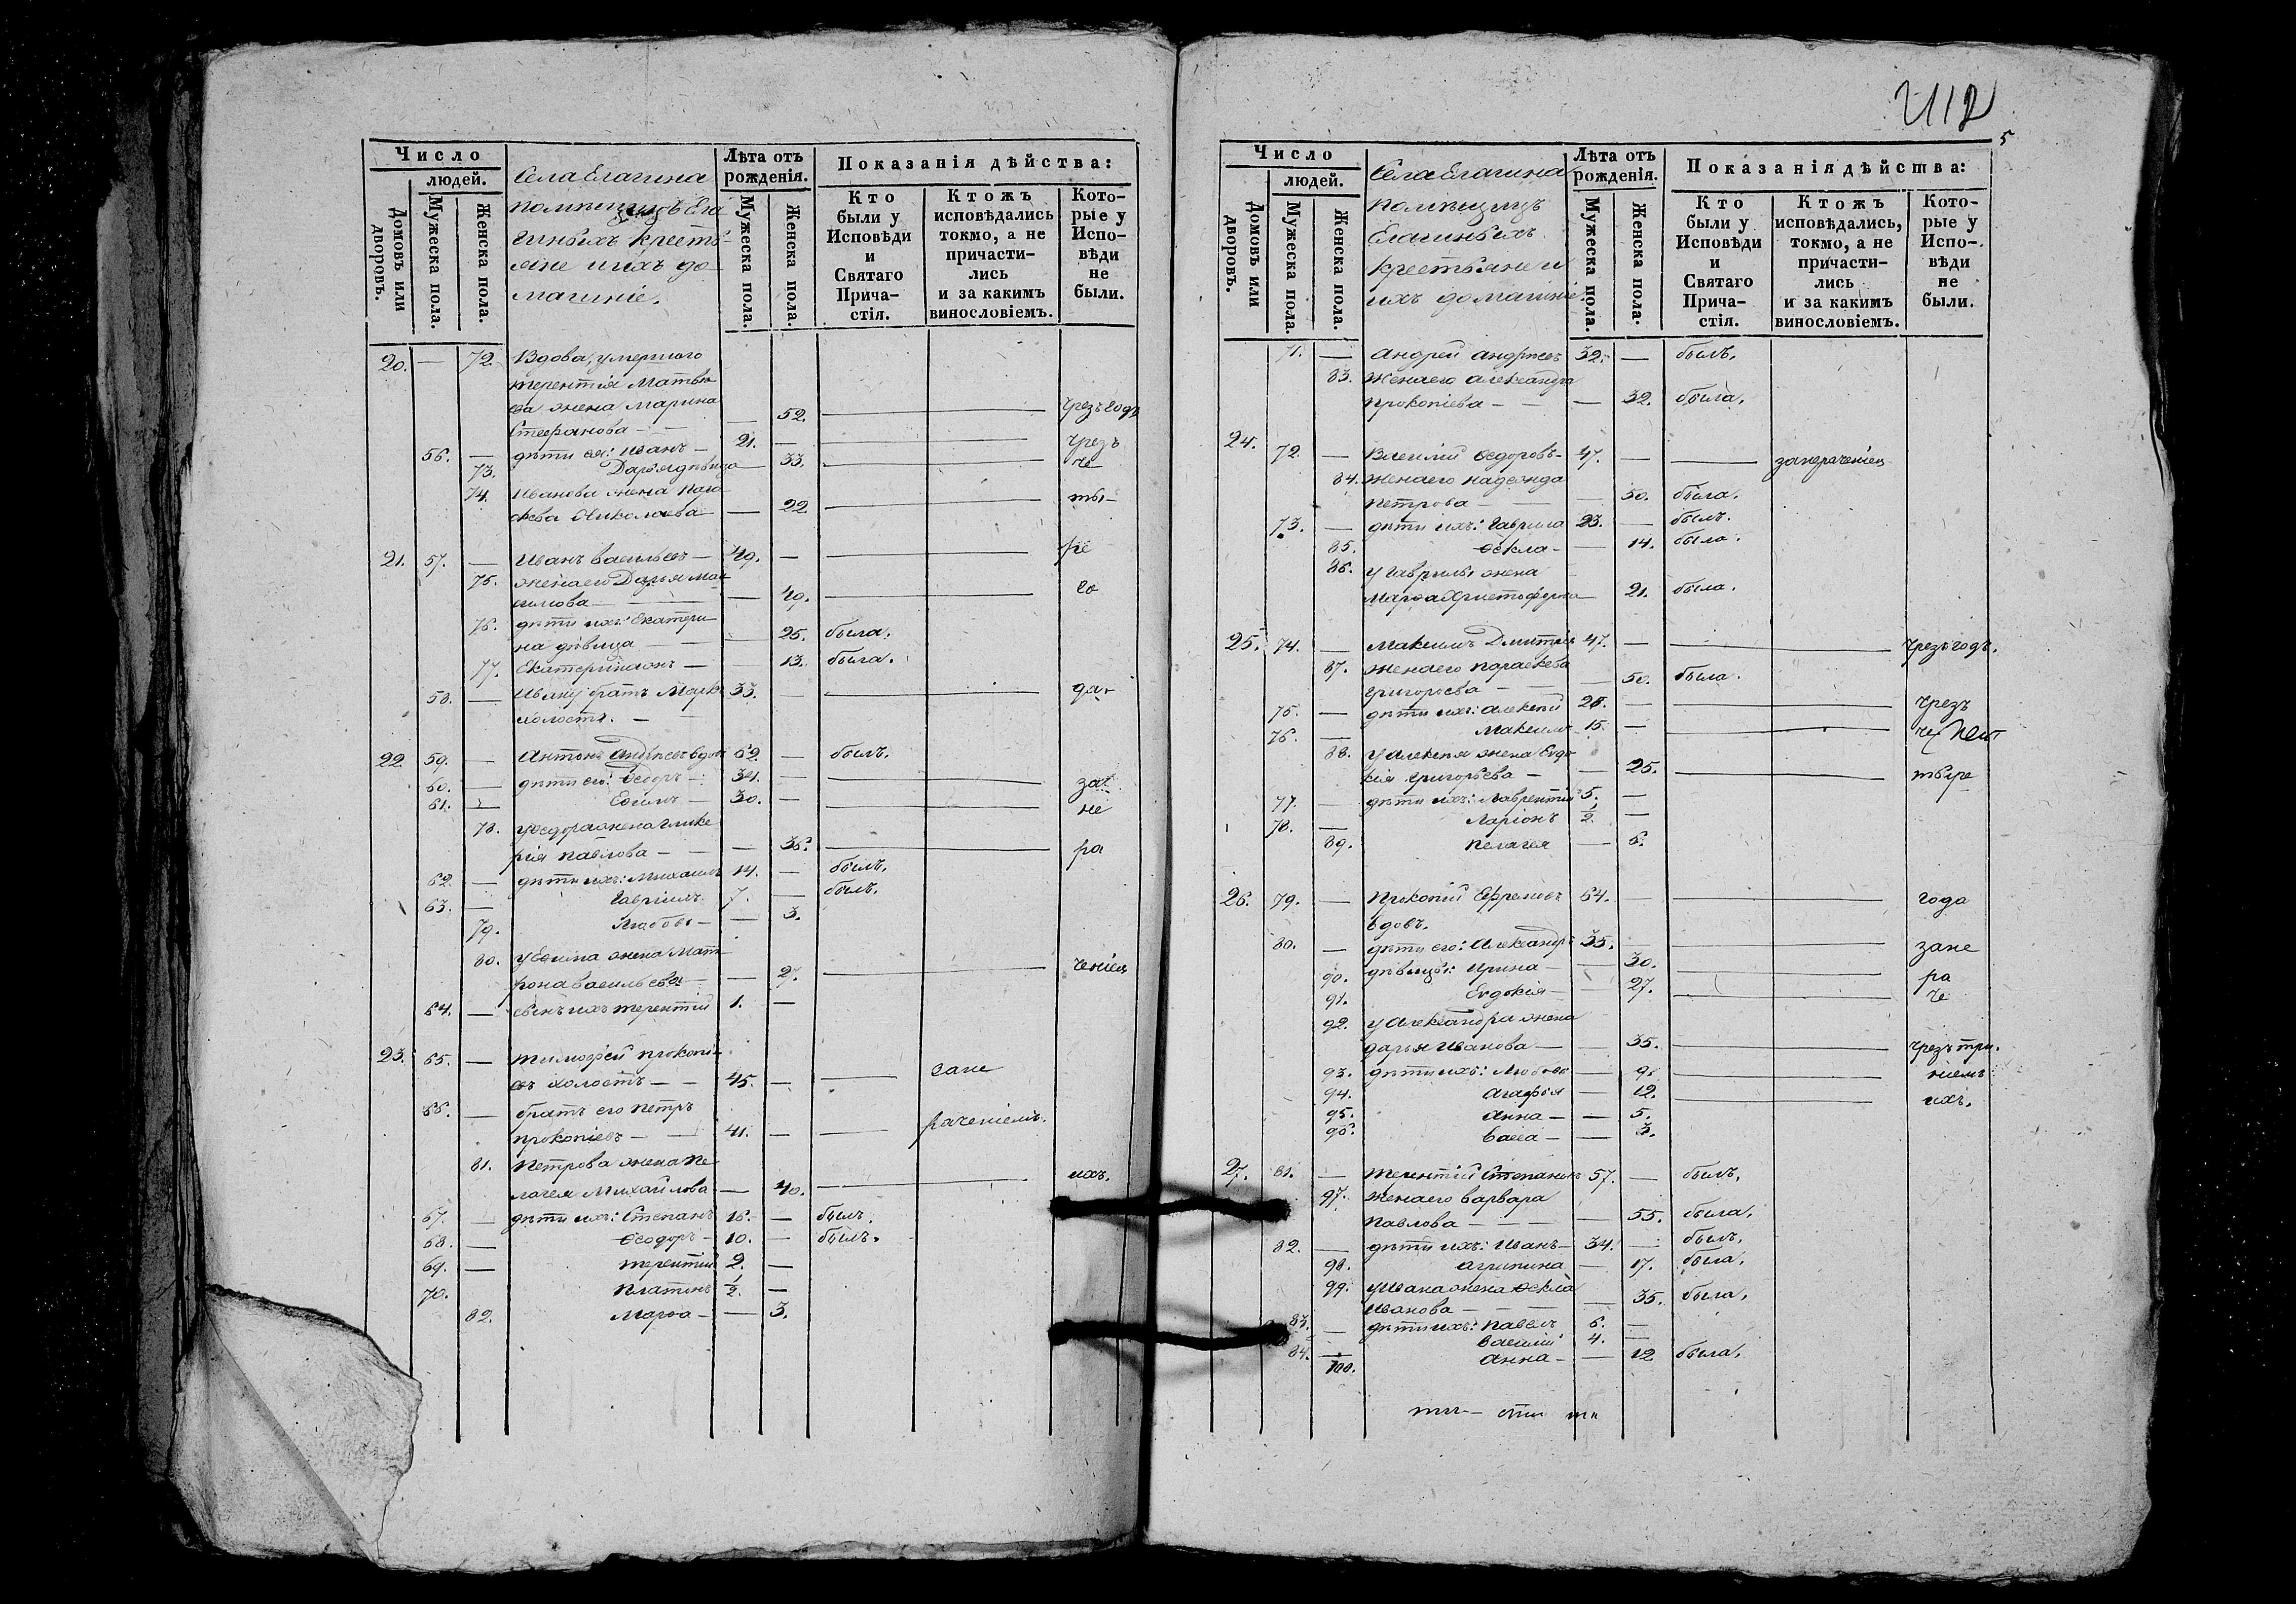 Число
людей.
Домовъ или дворовъ.
Мужеска пола.
Женска пола.
Села Елагина
помѣщицъ Ела
гиныхъ крестья
яне и ихъ до
машніе.
Лѣта отъ рожденія.
Мужеска пола.
Женска пола.
Показанія дѣйства:
Кто были у Исповѣди и Святаго Прича-стія.
Ктожъ исповѣдались токмо, а не причасти-лись и за какимъ винословіемъ.
Кото-рые у Испо-вѣди не были.
20. — 72. Вдова, умершаго
терентія Матвѣ
ева жена Марина
Стефанова — — 52. чрезъ годъ
56. — дѣти ея: Иванъ — 21. — чрезъ
73. Дарья дѣвица — 33. че
74. Иванова жена Пара
скева Николаева — 22. ты —
21. 57. — Иванъ васильевъ — 49. — ре
75. жена его Дарья Мак
симова — — 49. го
76. дѣти ихъ: Екатери
на дѣвица — — 25. была.
77. Екатерина он — — 13. была.
58. — Ивану братъ Марк 33. — да
холостъ. —
22. 59. — Антонъ Андреевъ вдов 62. — былъ.
60. — дѣти его: Ѳеодоръ — 34. — за
61. — Евѳимъ — 30. — не
78. у Ѳедора жена Глике
рія Павлова — — 36. ра
62. — дѣти ихъ: Михаилъ 14. — былъ.
63. — Гавріилъ 7. — былъ.
79. Любовь — — 3.
80. у Евѳима жена Мат
рона васильева — — 27. ченіем
64. — сынъ ихъ терентій 1. —
23. 65. — тимоѳей Прокопі
евъ холостъ — — 45. — — зане
66. — братъ его Петръ
Прокопіевъ — 41. — — раченіемъ.
81. Петрова жена Пе
лагея Михайлова — 40. ихъ.
67. — дѣти ихъ: Степанъ 16. — былъ.
68. — Ѳеодоръ — 10. — былъ.
69. — терентій 2. —
70. Платонъ ½. —
82. Марѳа — — 3.
412
5
Число
людей.
Домовъ или дворовъ.
Мужеска пола.
Женска пола.
Села Елагина
помѣщицъ
Елагиныхъ
крестьяне и
ихъ домашніе
Лѣта отъ рожденія.
Мужеска пола.
Женска пола.
Показанія дѣйства:
Кто были у Исповѣди и Святаго Прича-стія.
Ктожъ исповѣдались, токмо, а не причасти-лись и за какимъ винословіемъ.
Кото-рые у Испо-вѣди не были.
71. — Андрей Андреевъ 32. — былъ.
83. жена его Александра
Прокопіева — — 32. была.
24. 72. — Василій Ѳедоровъ — 47. — — занераченіем
84. жена его надежда
Петрова — — 50. была.
73. — дѣти ихъ: Гаврила 23. — былъ.
85. Ѳекла — — 14. была.
86. у Гаврилы жена
Марѳа Христофорова — 21. была.
25. 74. — Максимъ Дмитріев 47. — чрезъ годъ.
87. жена его параскева
григорьева — — 50. была.
75. — дѣти ихъ: Алексѣй 26. — чрезъ
76. — Максимъ 15. — че
88. у Алексѣя жена Евдо
кія григорьева — — 25. тыре
77. — дѣти ихъ: Лаврентій 5. —
78. — Ларіонъ ½. —
89. Пелагея — 6.
26. 79. — Прокопій Ефремовъ 64. — года
вдовъ.
80. — дѣти его: Александръ 35. — зане
90. дѣвицы: Ирина — — 30. ра
91. Евдокія — — 27. че
92. у Александра жена
дарья Иванова — — 35. чрезъ три.
93. дѣти ихъ: Любовь — 9. ніемъ
94. Агафья — 12. ихъ.
95. Анна — — 5.
96. васса — — 3.
27. 81. — терентій Степановъ 57. — былъ.
97. жена его варвара
Павлова — — — — 55. была.
82. — дѣти ихъ: Иванъ — 34. — былъ.
98. Агрипина — 17. была.
99. у Ивана жена Ѳекла
Иванова — — 35. была.
83. — дѣти ихъ: Павелъ 6. —
84. — василій 4. —
100. Анна — — 12 была.